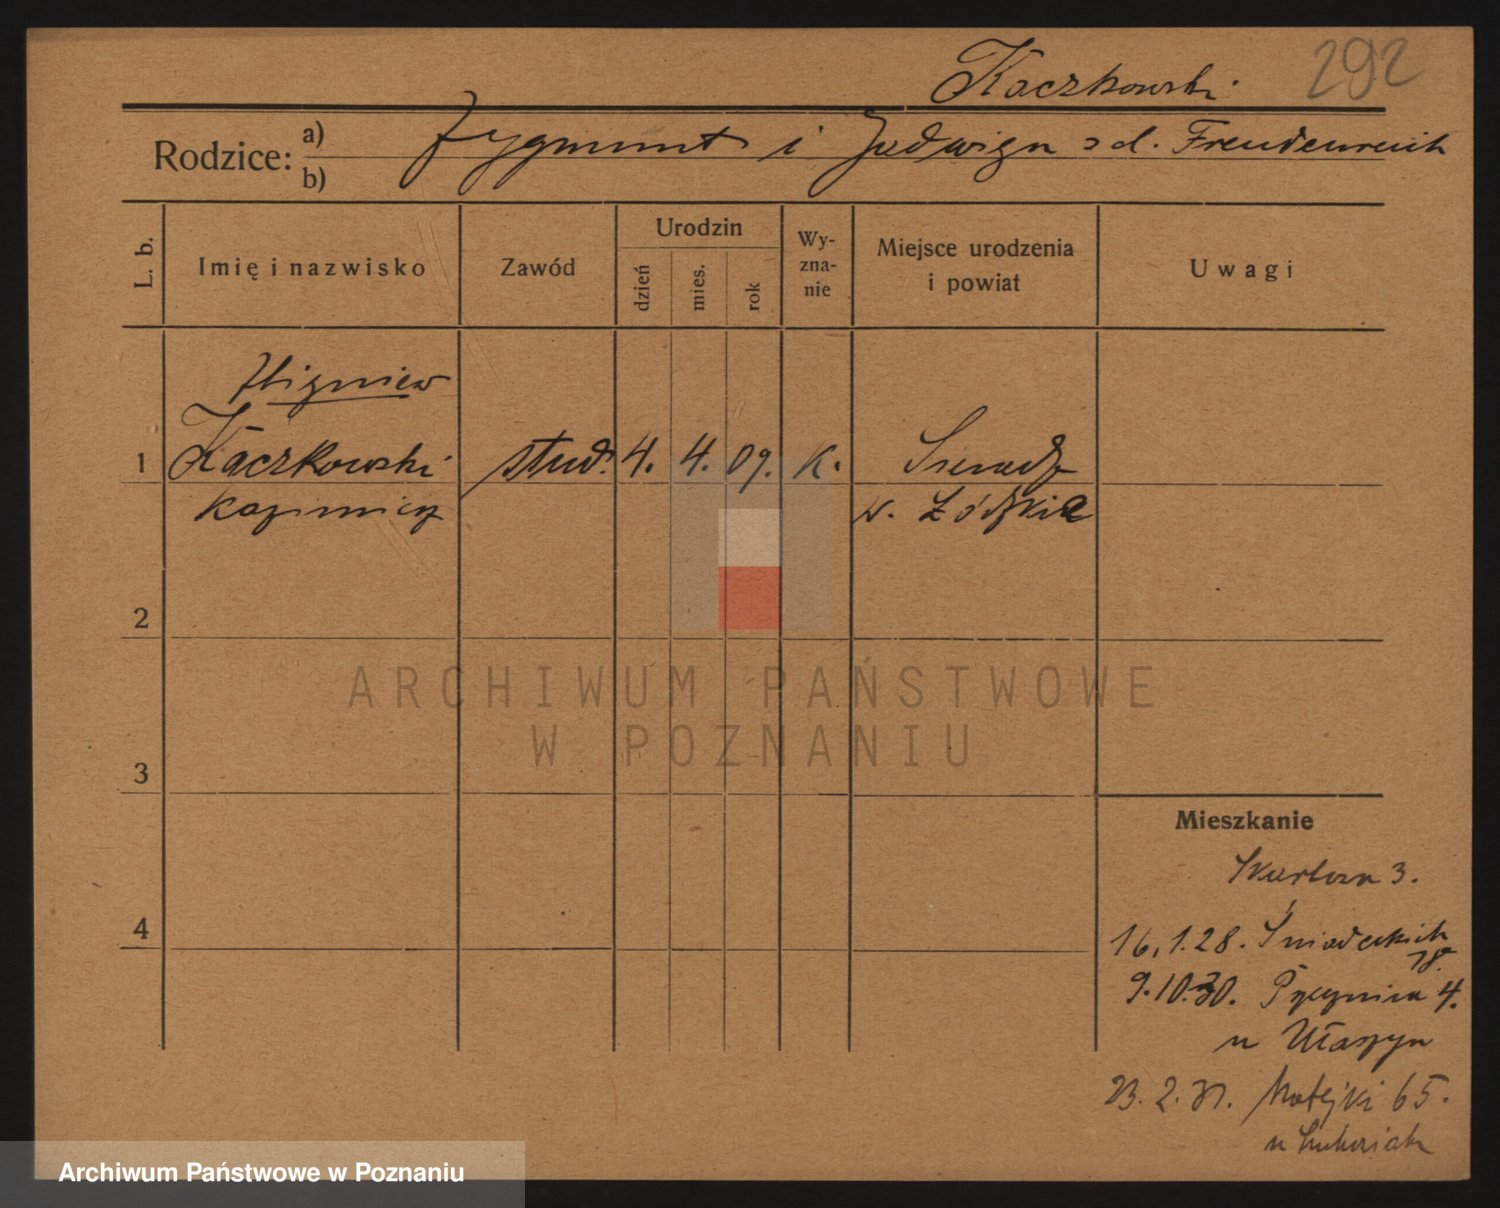 Kaczkowski 292
Rodzice: a) b) Zygmunt i Jadwiga z d. Freudenreich
L. b. Imię i nazwisko Zawód Urodzin dzień mies. rok Wyzna-nie Miejsce urodzenia i powiat Uwagi
Zbigniew
1 Kaczkowski stud. 4. 4. 09. k. Sieradz
Kazimierz w. Łódzkie
2
ARCHIWUM PAŃSTWOWE
W POZNANIU
3
Mieszkanie
Skarbowa 3.
4
16.1.28. Śniadeckich
18.
9.10.30. 4.
u
23.2.31. Matejki 65.
u
Archiwum Państwowe w Poznaniu